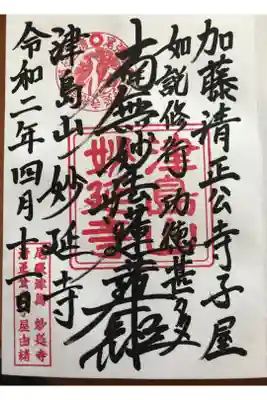 加藤清正公寺子屋
如説修行功徳甚多
南無妙法蓮華経
津島山妙延寺
令和二年四月十二日
尾張津島 妙延寺
清正公 寺子屋由緒